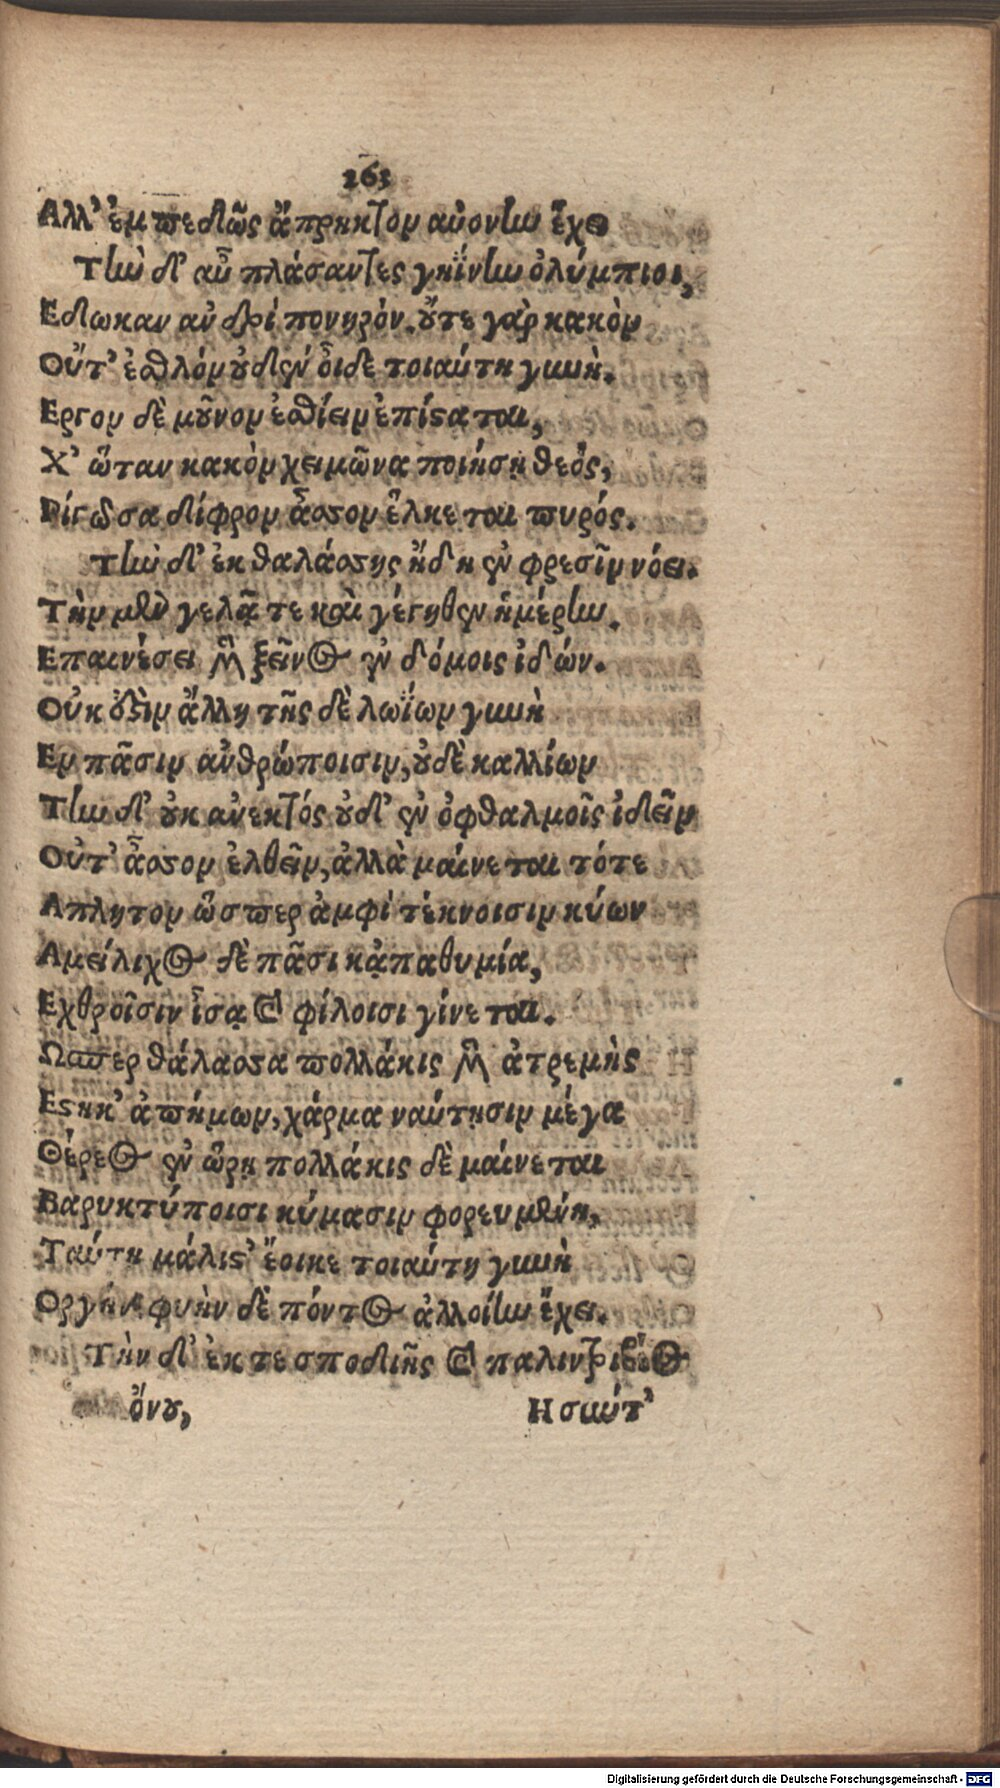 263
Αλλ' ἐμπεδῶς ἄπρηκτον αὐονὴν ἔχει
Τὴν δ' αὖ πλάσαντες γηΐνην ὀλύμπιοι,
Εδωκαν ἀνδρί πονηρόν. οὔτε γὰρ κακὸν
Οὔτ' ἐσθλόν οὐδὲν οἶδε τοιαύτη γυνὴ.
Εργον δὲ μοῦνον ἐσθίειν ἐπίσταται,
Χ' ὥταν κακὸν χειμῶνα ποιήσῃ θεὸς,
Ρίγωσα δίφρον ἆσσον ἕλκεται πυρός.
Τὴν δ' ἐκ θαλάσσης ἥ δ' ἦν ἐν φρεσῖν νόει.
Τὴν μὲν γελᾷ τε καὶ γέγηθεν ἡμέρην.
Επαινέσει μὴν ξεῖνος ἐν δόμοις ἰδών.
Οὐκ ἔστιν ἄλλη τῆς δὲ λωΐων γυνὴ
Εν πᾶσιν ἀνθρώποισιν, οὐδὲ καλλίων
Τὴν δ' οὐκ ἀνεκτός οὐδ' ἐν ὀφθαλμοῖς ἰδεῖν
Οὔτ' ἆσσον ἐλθεῖν, ἀλλὰ μαίνεται τότε
Απλητον ὥσπερ ἀμφὶ τέκνοισιν κύων
Αμείλιχος δὲ πᾶσι κᾀπαθυμία,
Εχθροῖσιν ἶσα καὶ φίλοισι γίνεται.
Ωσπερ θάλασσα πολλάκις μὴν ἀτρεμὴς
Εστηκ' ἀπήμων, χάρμα ναύτῃσιν μέγα
Θέρεος ἐν ὥρῃ πολλάκις δὲ μαίνεται
Βαρυκτύποισι κύμασιν φορευμένη,
Ταύτῃ μάλιστ' ἔοικε τοιαύτη γυνὴ
Οργήν φυὴν δὲ πόντος ἀλλοίην ἔχει.
Τὴν δ' ἐκ τε σποδιῆς καὶ παλιντριβέος
ὄνου,
Η σαύτ'
Digitalisierung gefördert durch die Deutsche Forschungsgemeinschaft - DFG